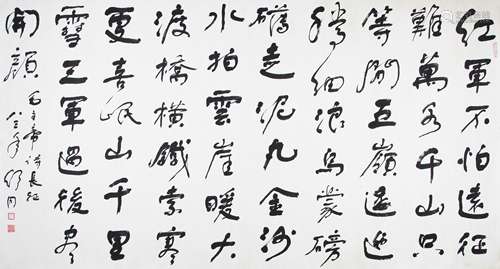 紅軍不怕遠征
難萬水千山只
等閒五嶺逶迤
騰細浪烏蒙磅
礴走泥丸金沙
水拍雲崖暖大
渡橋橫鐵索寒
更喜岷山千里
雪三軍過後盡
開顏 毛主席詩長征
年舒同